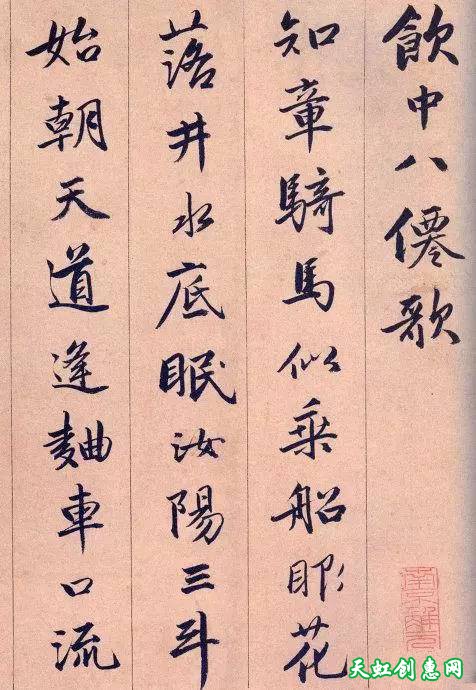 飲中八僊歌
知章騎馬似乘船眼花
落井水底眠汝陽三斗
始朝天道逢麯車口流
天虹创惠网